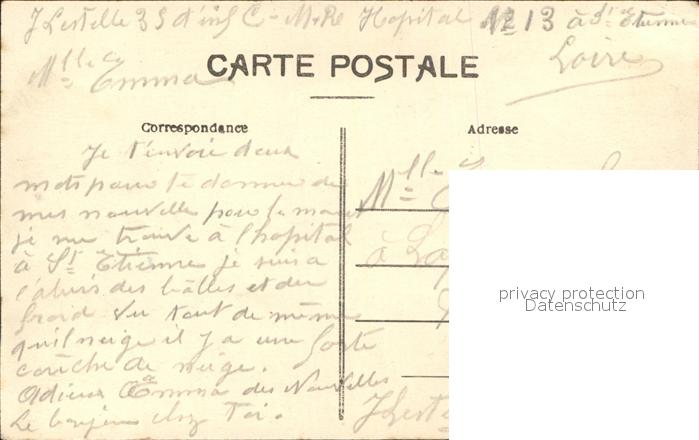 J Lestelle 35 d'inf C - M. Re Hopital N° 13 à St Etienne
Loire
Mlle Emma
CARTE POSTALE
Correspondance
Adresse
Je t'envoie deux
mots pour te donner de
mes nouvelle pour le moment
je me trouve à l'hopital
à St Etienne je suis a
l'abris des balles et du
froid vu tout de même
qu'il neige il y a une forte
couche de neige.
Adieux Emma des Nouvelles
Le bonjour chez Toi.
Mlle
à
J Leste
privacy protection
Datenschutz